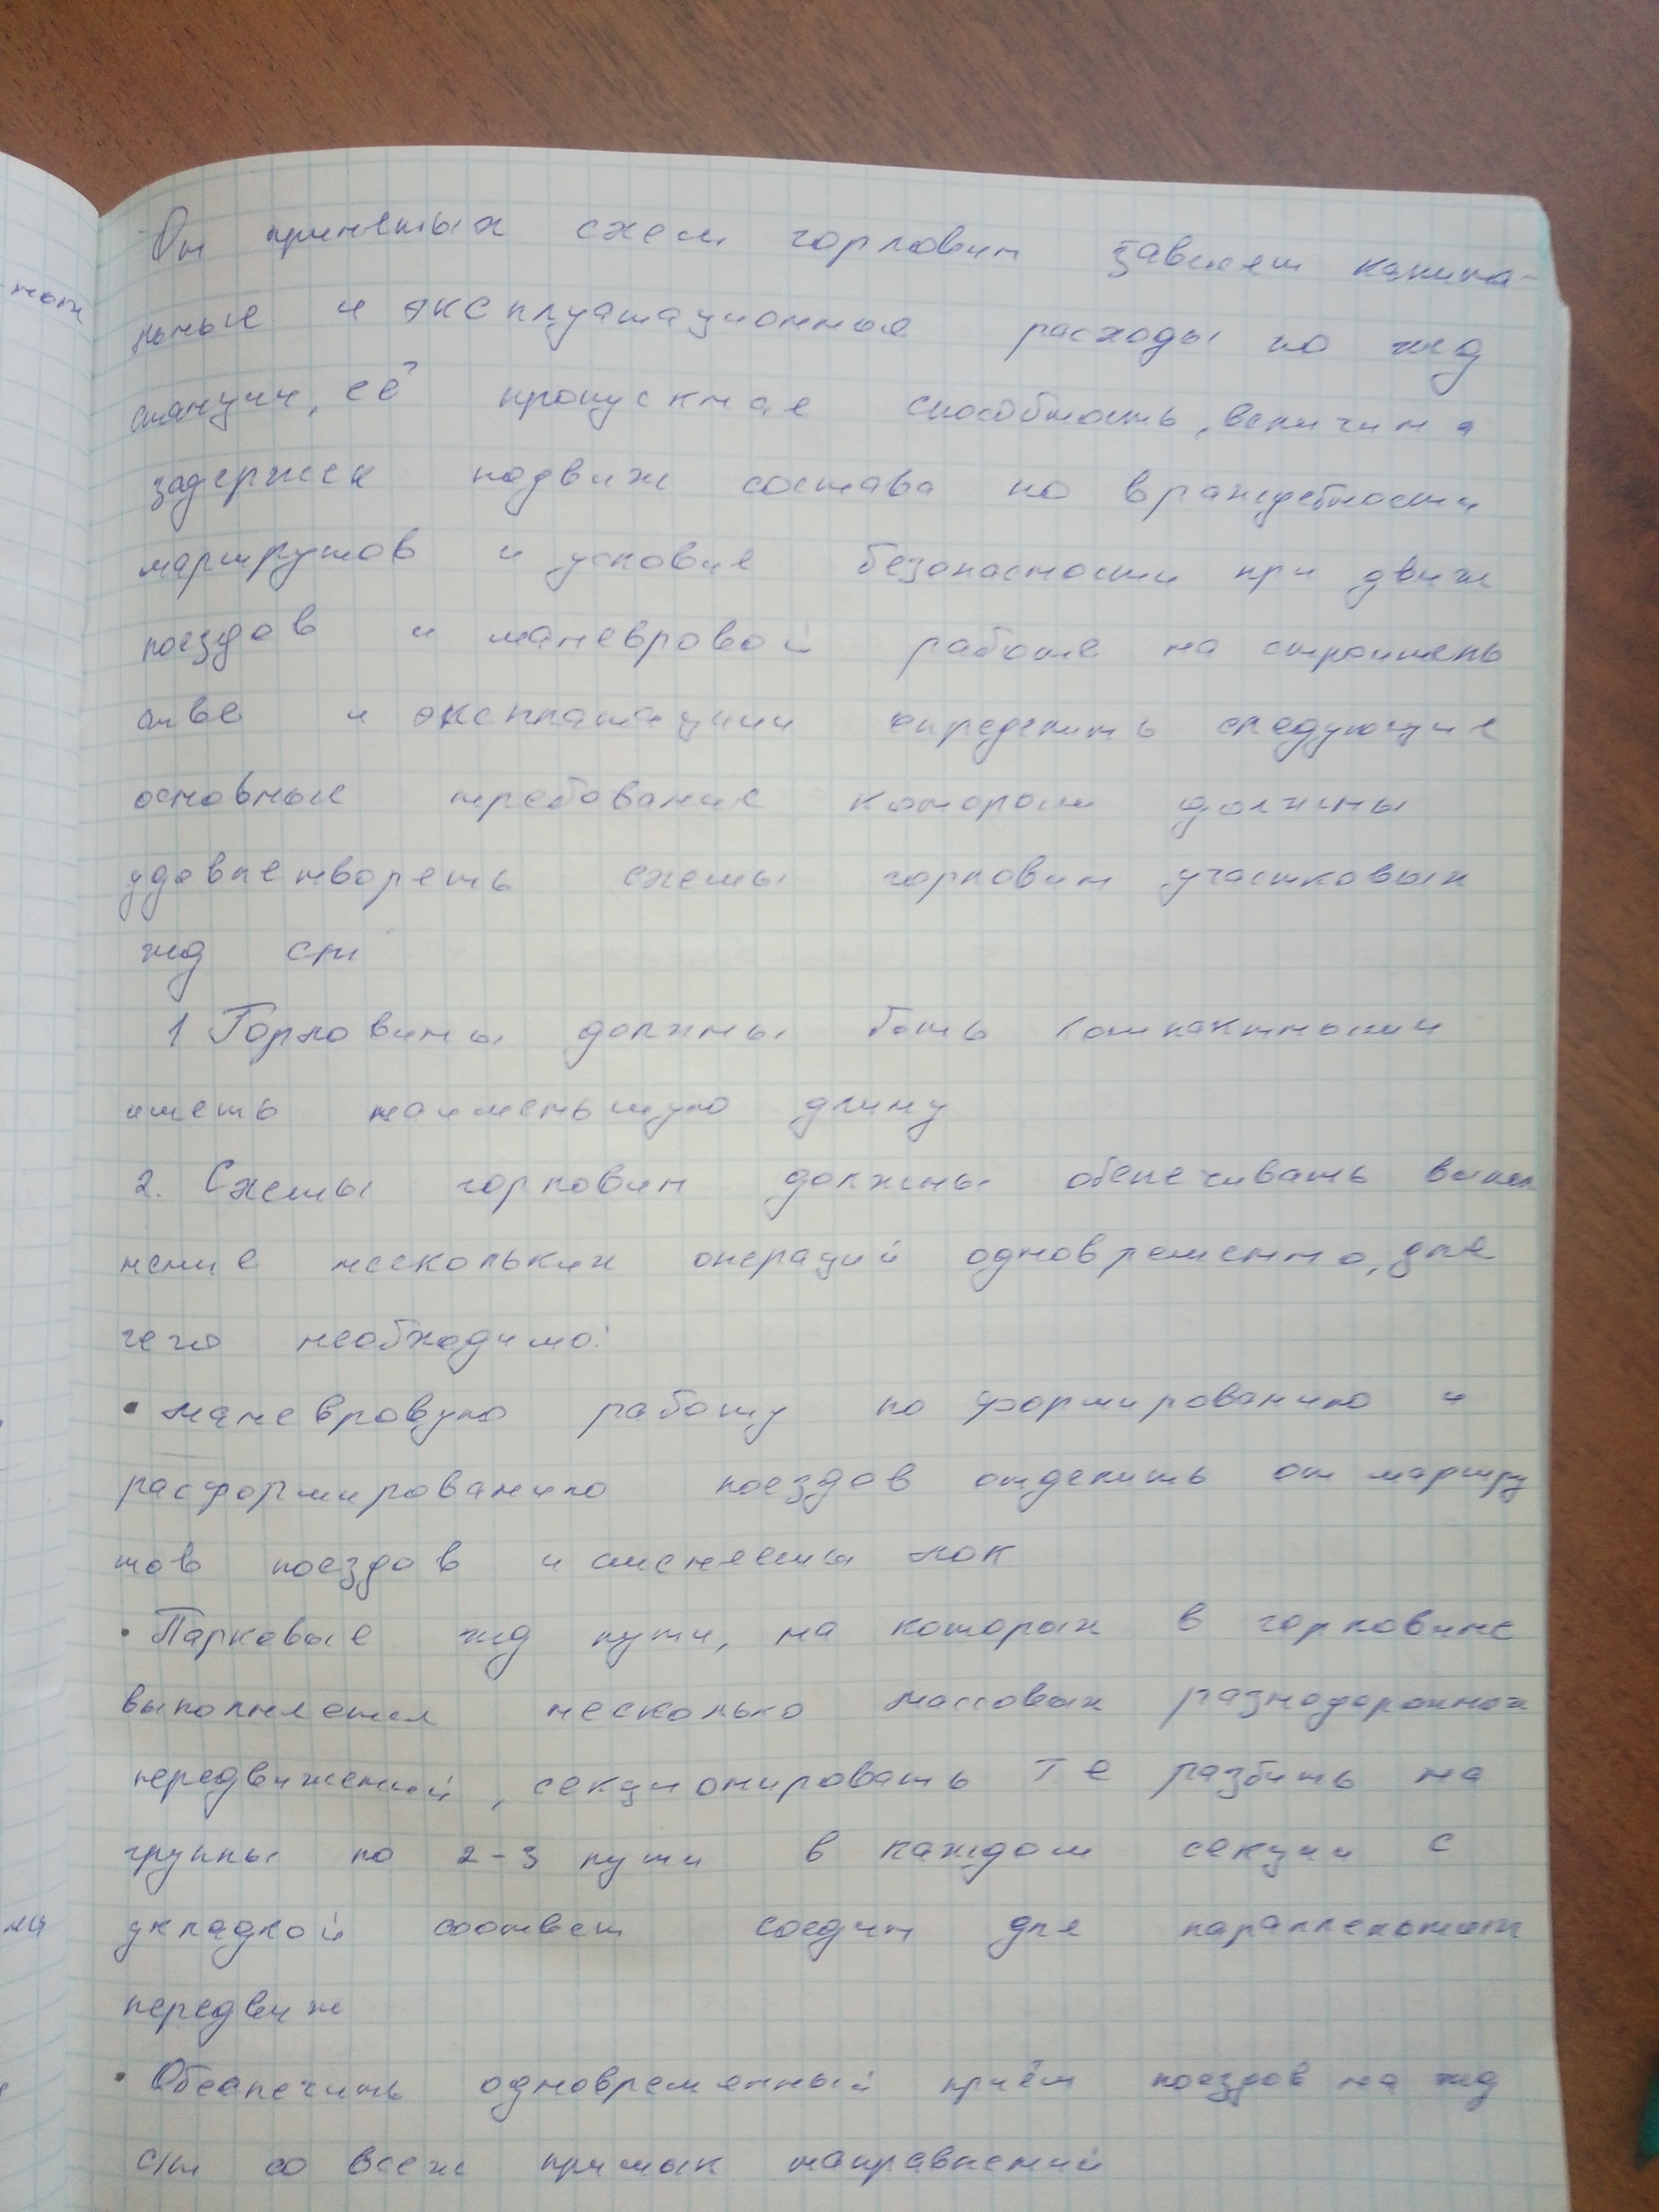 От принятых схем горловин зависят капита-
льные и эксплуатационные расходы по жд
станции, её пропускная способность, величина
задержек подвиж состава по враждебности
маршрутов и условия безопасности при движ
поездов и маневровой работе на строитель
стве и эксплатации определить следующие
основные требования которым должны
удовлетворять схемы горловин участковых
жд ст
1 Горловины должны быть компактными
иметь наименьшую длину
2. Схемы горловин должны обепечивать выпол
нение нескольких операций одновременно, для
чего необходимо:
• маневровую работу по формированию и
расформированию поездов отделить от маршру
тов поездов и сменяемы лок
• Парковые жд пути, на которых в горловине
выполняется несколько массовых разнодорожных
передвижений, секционировать т е разбить на
группы по 2-3 пути в каждом секции с
укладкой соответ соедин для параллельных
передвиж
• Обеспечить одновременный приём поездов на жд
ст со всех примык направлений